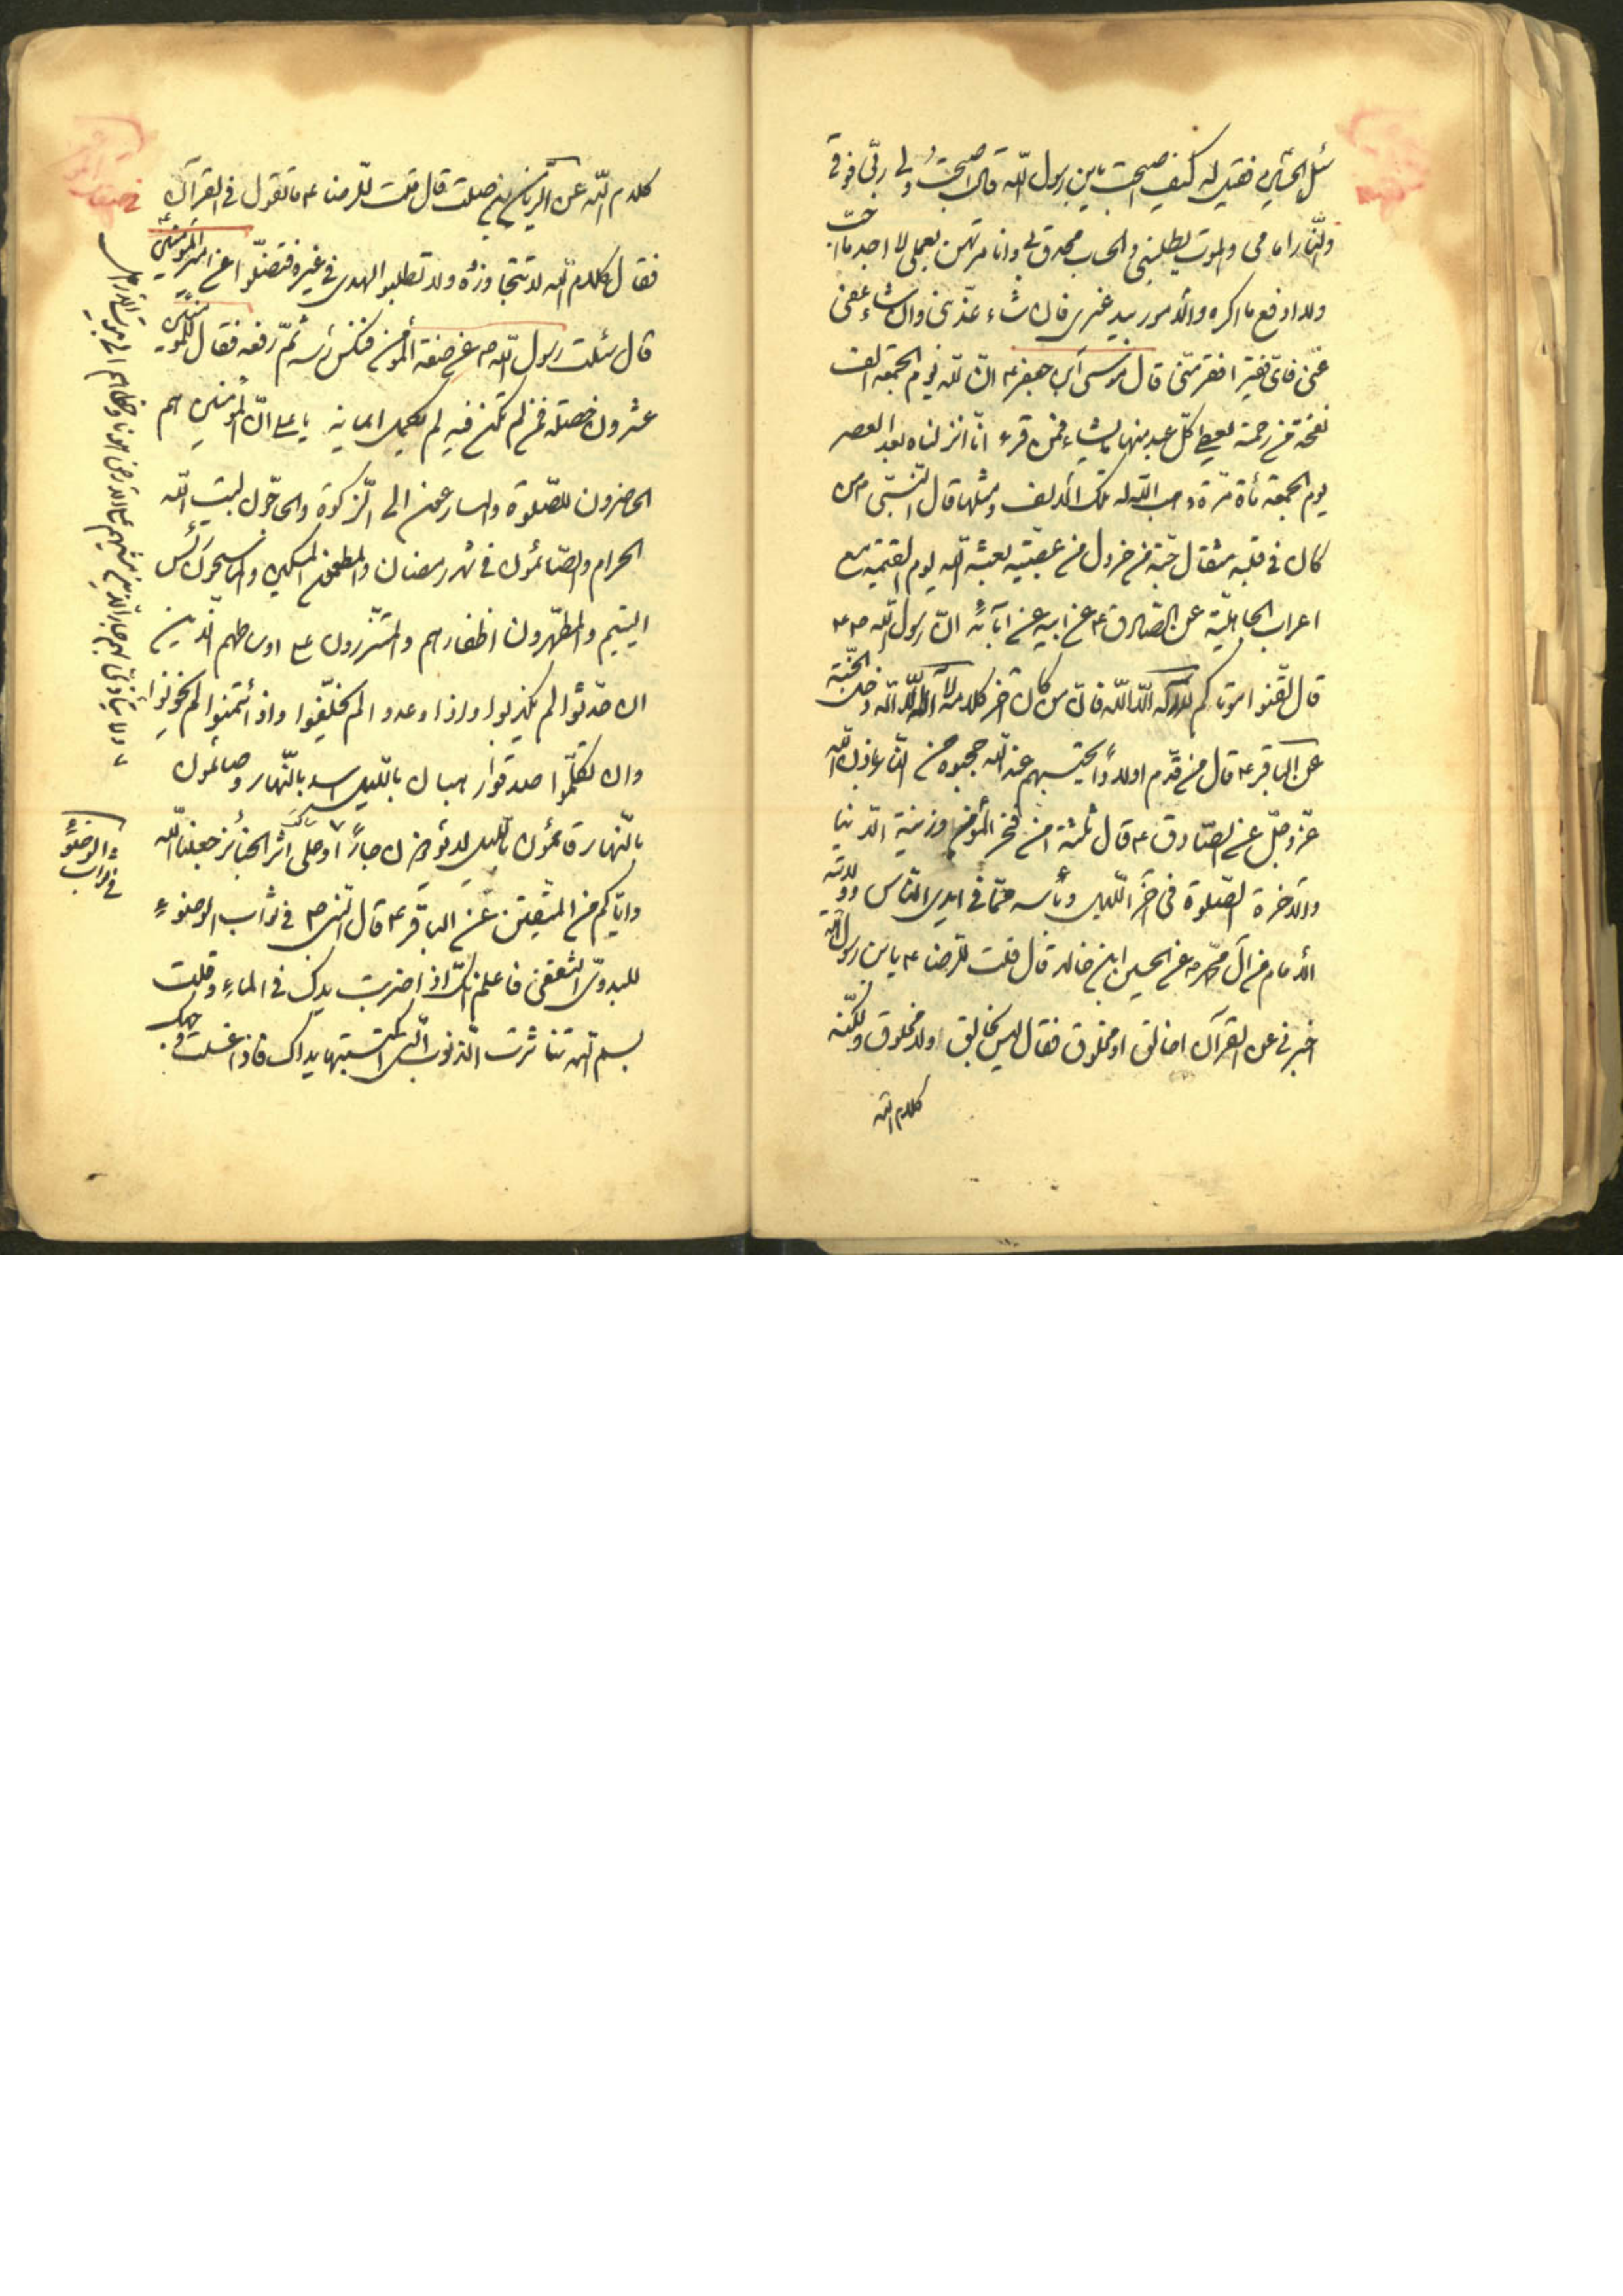 سئل الحسين فقيل له كيف اصبحت يابن رسول الله قال اصبحت ولى ربّى فوقى
والنّار امامى والموت يطلبنى والحساب محدق بى وانا مرتهن بعملى لا اجد ما احبّ
ولا ادفع ما اكره والأمور بيد غيرى فان شاء عذّبنى وان شاء عفى
عنّى فاىّ فقير افقر منّى قال موسى ابن جعفر ع انّ لله يوم الجمعة الف
نفحة من رحمة يعطى كلّ عبد منها ما يشاء فمن قرء انّا انزلناه بعد العصر
يوم الجمعة مأة مرّة وهب الله له تلك الألف ومثلها قال النّبىّ ص من
كان فى قلبه مثقال حبّة من خردل من عصبيّة بعثه الله يوم القيمة مع
اعراب الجاهليّة عن الصّادق ع عن ابيه عن آبائه انّ رسول الله ص
قال لقّنوا موتاكم لا اله الّا الله فانّ من كان آخر كلامه لا اله الّا الله دخل الجنّة
عن الباقر ع قال من قدّم اولادًا يحتسبهم عند الله حجبوه من النّار باذن الله
عزّ وجلّ عن الصّادق ع قال ثلثة هنّ فخر المؤمن وزينة الدّنيا
والآخرة الصّلوة فى آخر اللّيل ويأسه ممّا فى ايدى النّاس وولايته
الأمام من آل محمّد ص عن الحسين ابن خالد قال قلت للرضا ع يابن رسول الله
اخبرنى عن القرآن اخالق او مخلوق فقال ليس بخالق ولا مخلوق ولكنّه
كلام الله
كلام الله عن الرّيّان بن صلت قال قلت للرضا ع ما تقول فى القرآن
فقال كلام الله لا تتجاوزوه ولا تطلبوا الهدى فى غيره فتضلّوا عن امير المؤمنين ع
قال سئلت رسول الله ص عن صفة المؤمن فنكس رأسه ثمّ رفعه فقال للمؤمنين
عشرون خصلة فمن لم تكن فيه لم يكمل ايمانه يا على انّ المؤمنين هم
الحاضرون للصّلوة والمسارعون الى الزّكوة والحاجّون لبيت الله
الحرام والصّائمون فى شهر رمضان والمطعمون المسكين والماسحون رأس
اليتيم والمطهّرون اظفارهم والمتّزرون على اوساطهم الّذين
ان حدّثوا لم يكذبوا واذا وعدوا لم يخلفوا واذا ائتمنوا لم يخونوا
وان تكلّموا صدقوا رهبان باللّيل اسد بالنّهار وصائمون
بالنّهار قائمون باللّيل لا يؤذون جارًا وعلى اثر الجنائز جعلنا الله
وايّاكم من المتّقين عن الباقر ع قال النبى ص فى ثواب الوضوء
للبدوىّ الثقفى فاعلم انّك اذا ضربت يدك فى الماء وقلت
بسم الله تناثرت الذّنوب الّتى اكتسبتها يداك فاذا غسلت وجهك
فى ثواب الوضوء